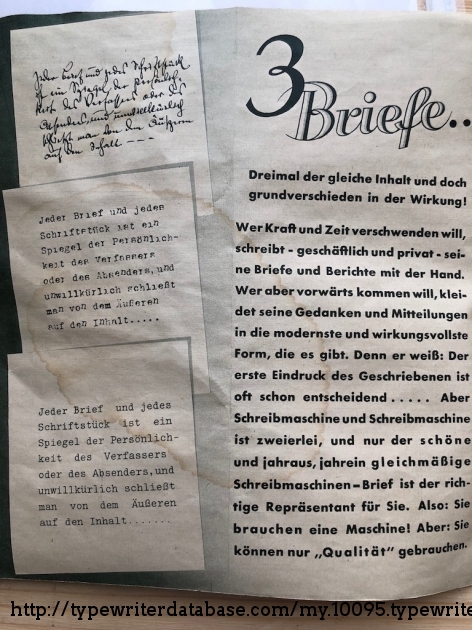 Jeder Brief und jedes Schriftstück
ist ein Spiegel der Persönlich-
keit des Verfassers oder des
Absenders, und unwillkürlich
schließt man von dem Äußeren
auf den Inhalt ---
Jeder Brief und jedes
Schriftstück ist ein
Spiegel der Persönlich-
keit des Verfassers
oder des Absenders, und
unwillkürlich schließt
man von dem Äußeren
auf den Inhalt.....
Jeder Brief und jedes
Schriftstück ist ein
Spiegel der Persönlich-
keit des Verfassers
oder des Absenders, und
unwillkürlich schließt
man von dem Äußeren
auf den Inhalt.......
3
Briefe..
Dreimal der gleiche Inhalt und doch
grundverschieden in der Wirkung!
Wer Kraft und Zeit verschwenden will,
schreibt - geschäftlich und privat - sei-
ne Briefe und Berichte mit der Hand.
Wer aber vorwärts kommen will, klei-
det seine Gedanken und Mitteilungen
in die modernste und wirkungsvollste
Form, die es gibt. Denn er weiß: Der
erste Eindruck des Geschriebenen ist
oft schon entscheidend ..... Aber
Schreibmaschine und Schreibmaschine
ist zweierlei, und nur der schöne
und jahraus, jahrein gleichmäßige
Schreibmaschinen-Brief ist der rich-
tige Repräsentant für Sie. Also: Sie
brauchen eine Maschine! Aber: Sie
können nur „Qualität" gebrauchen.
http://typewriterdatabase.com/my.10095.typewrite